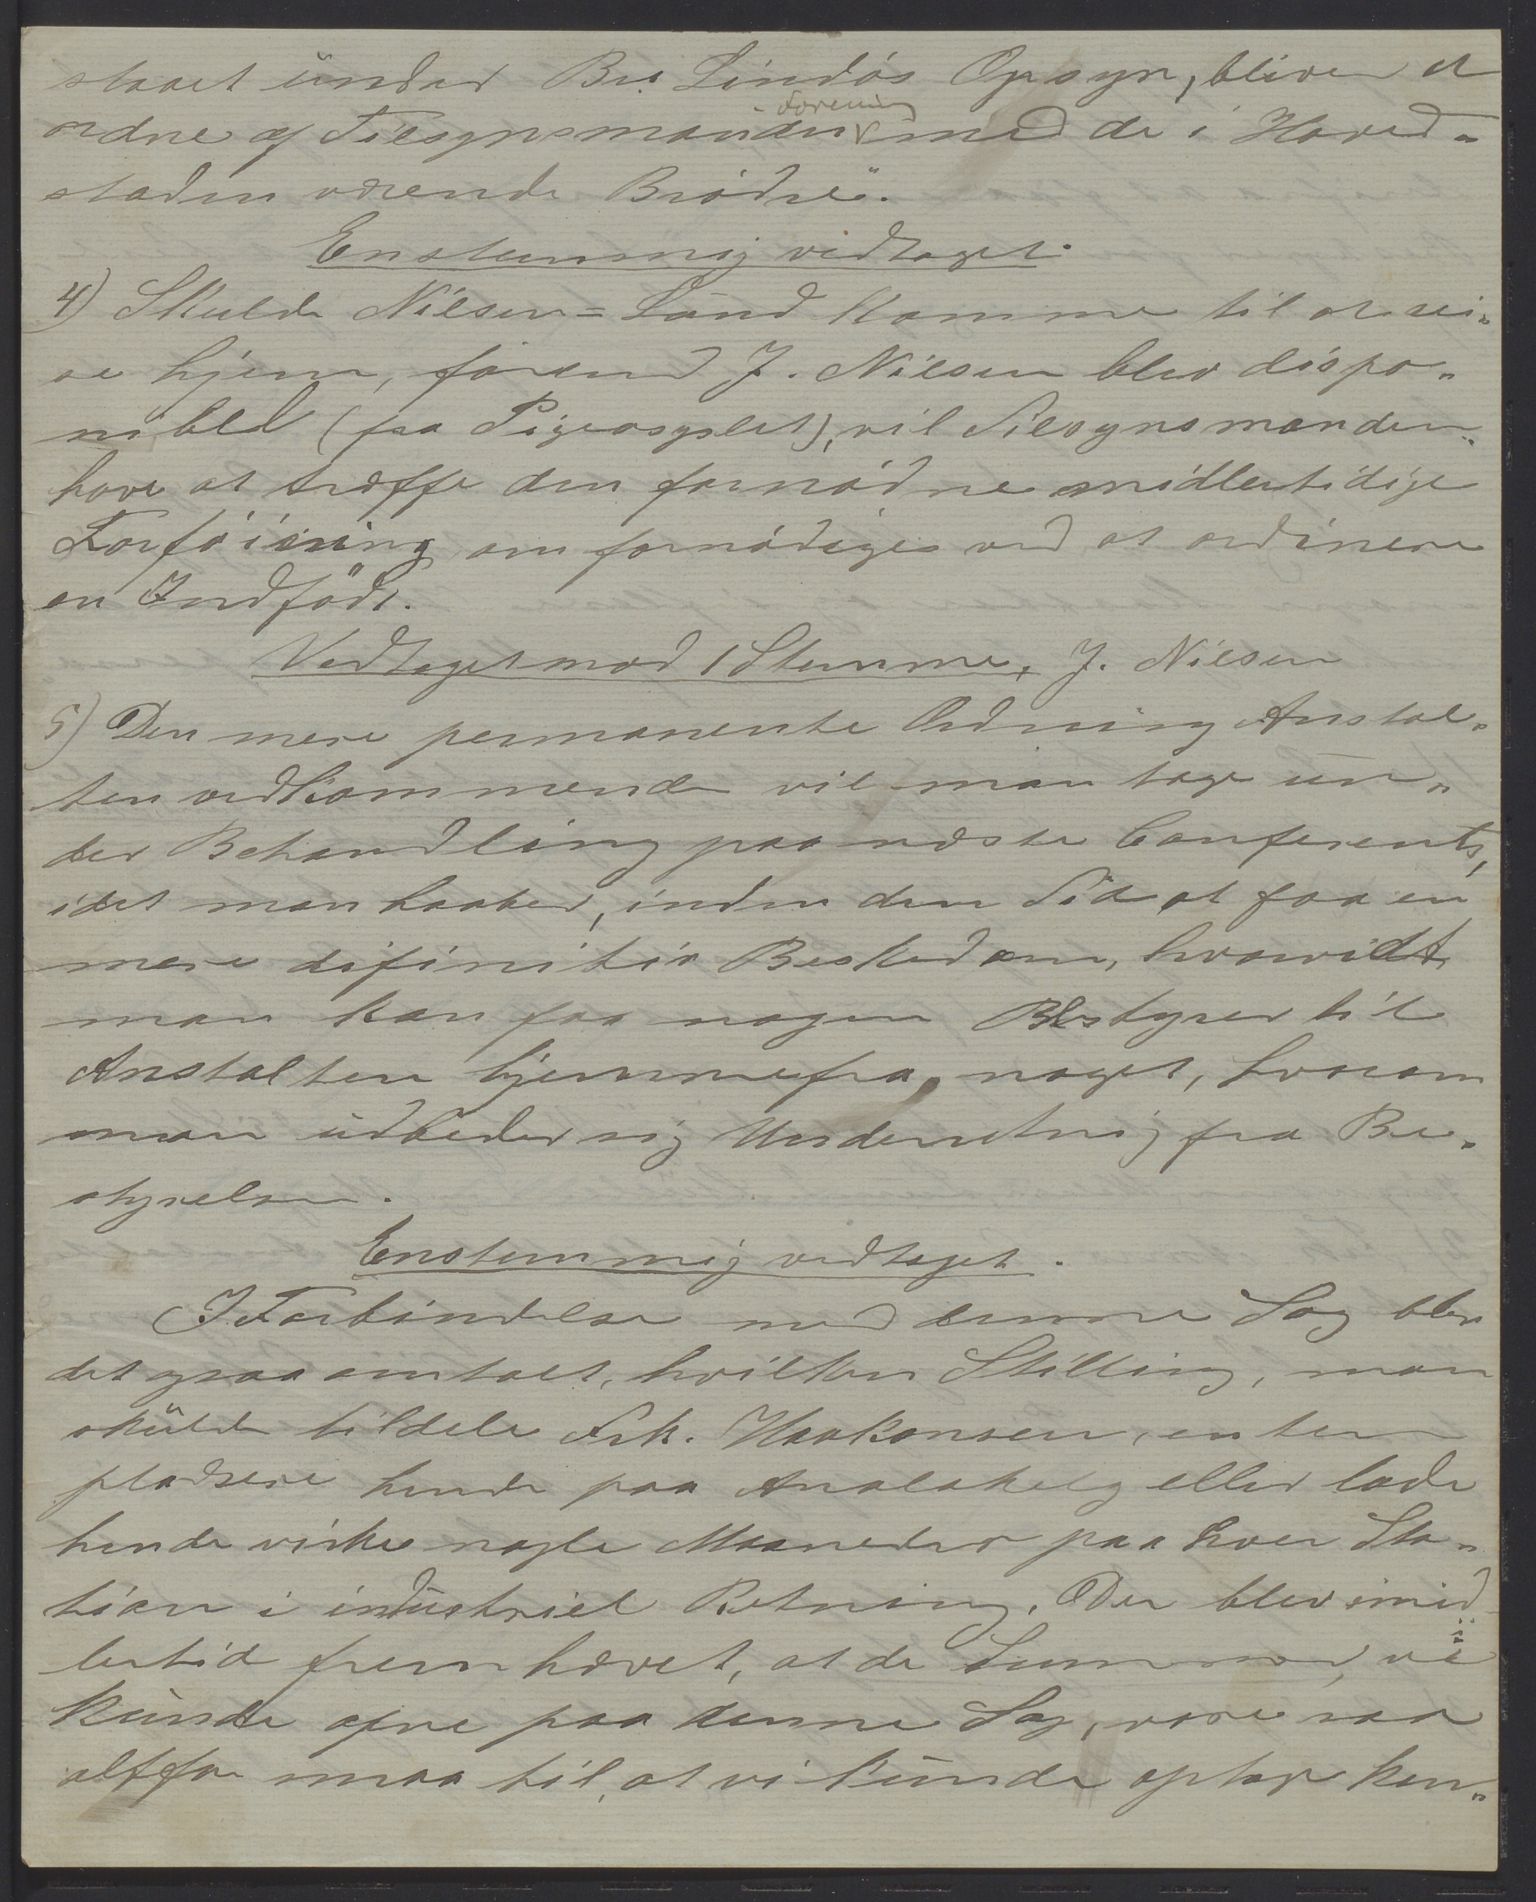 staaet under Br. Lindøs Opsyn, bliver at
ordne af Tilsynsmanden i Forening med de i Hoved-
staden værende Brødre".
Enstemmig vedtaget.
4) Skulde Nilsen=Lund komme til at rei-
se hjem, førend J. Nilsen blev dispo-
nibel (fra Pigeasylet), vil Tilsynsmanden
have at træffe den fornødne midlertidige
Forføining om fornødiges ved at ordinere
en Indfødt.
Vedtaget mod 1 Stemme, J. Nilsen
5) Den mere permanente Ordning Anstal-
ten vedkommende vil man tage un-
der Behandling paa næste Conferents,
idet man haaber, inden den Tid at faa en
mere difinitiv Besked om, hvorvidt
man kan faa nogen Bestyrer til
Anstalten hjemmefra, noget, hvorom
man udbeder sig Underretning fra Be-
styrelsen.
Enstemmig vedtaget.
I Forbindelse med denne Sag blev
det ogsaa omtalt, hvilken Stilling, man
skulde tildele Frk. Haakonsen, enten
pladsere hende paa Analakely eller lade
hende virke nogle Maaneder paa hver Sta-
tion i industriel Retning. Der blev imid-
lertid fremhævet, at de Summer, vi
kunde ofre paa denne Sag, vare saa
altfor smaa til, at vi kunde optage kon-